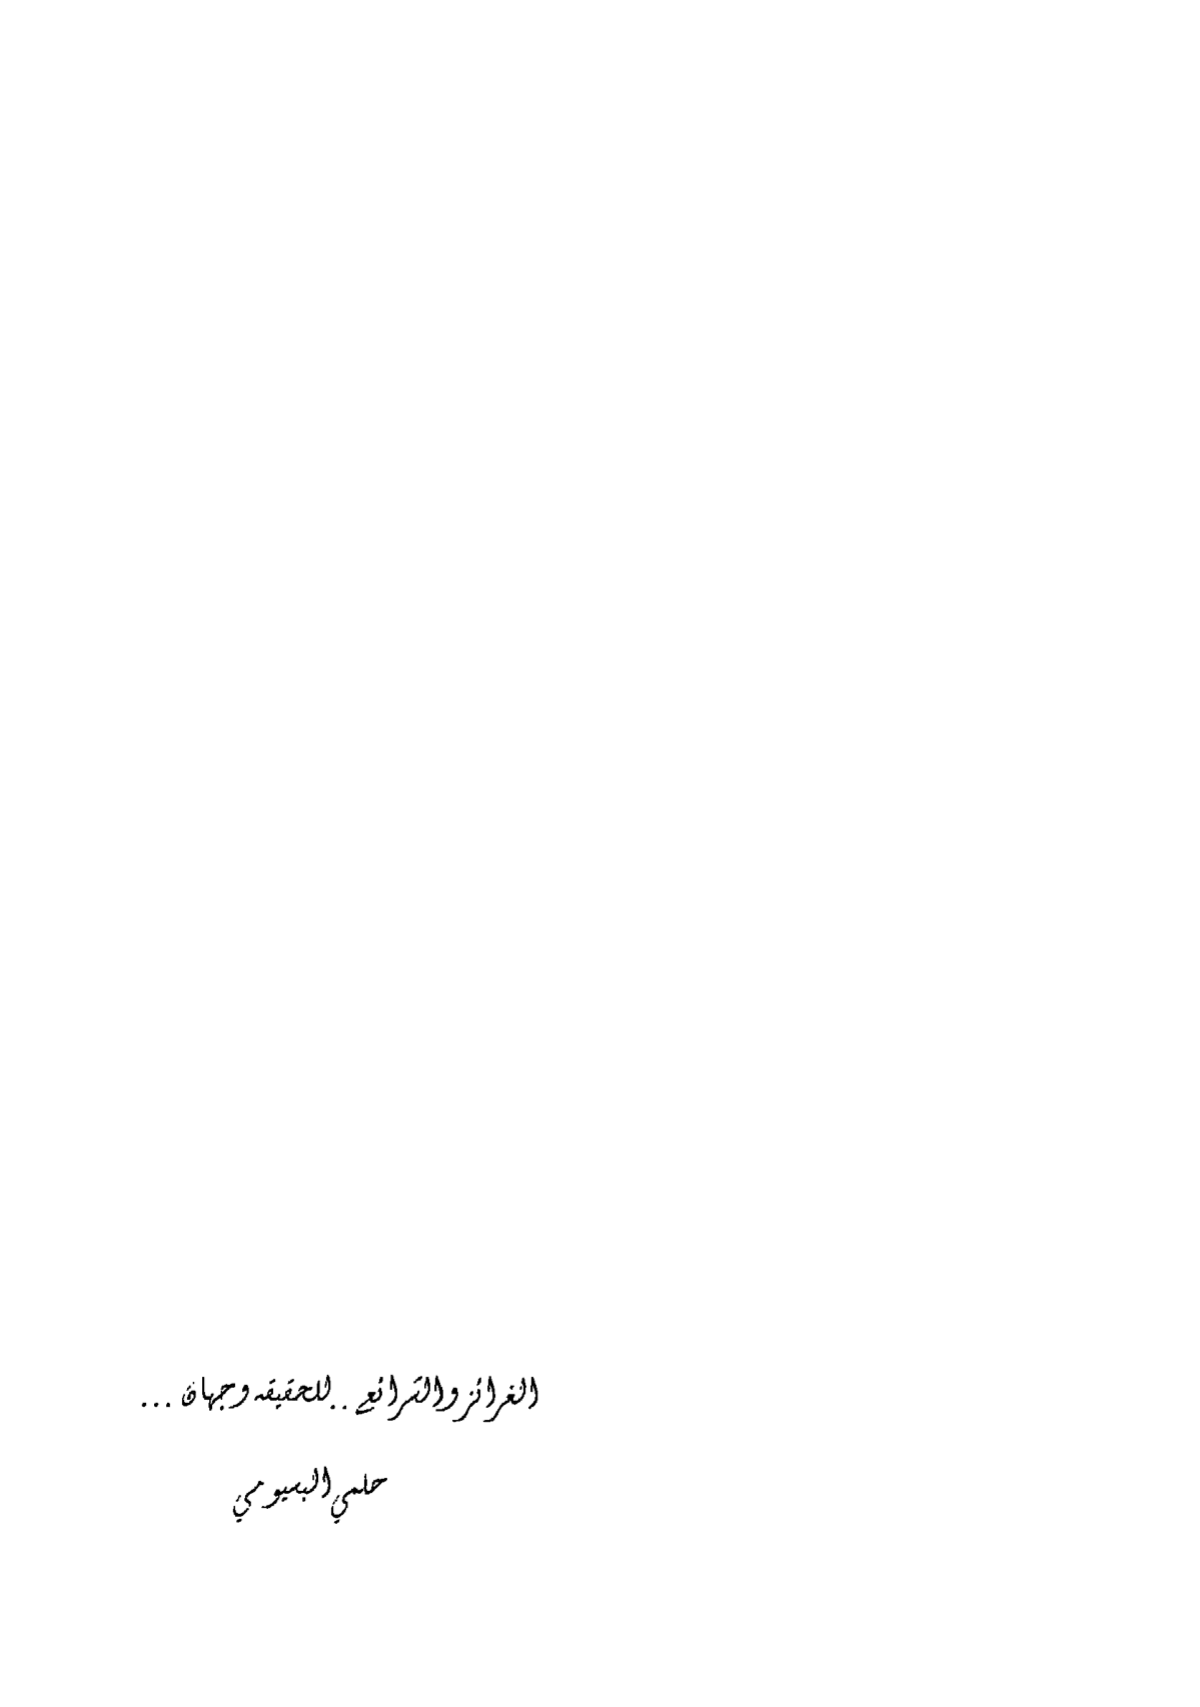 الغرائز والشرائع .. للحقيقه وجهان ...
حلمي البسيومي